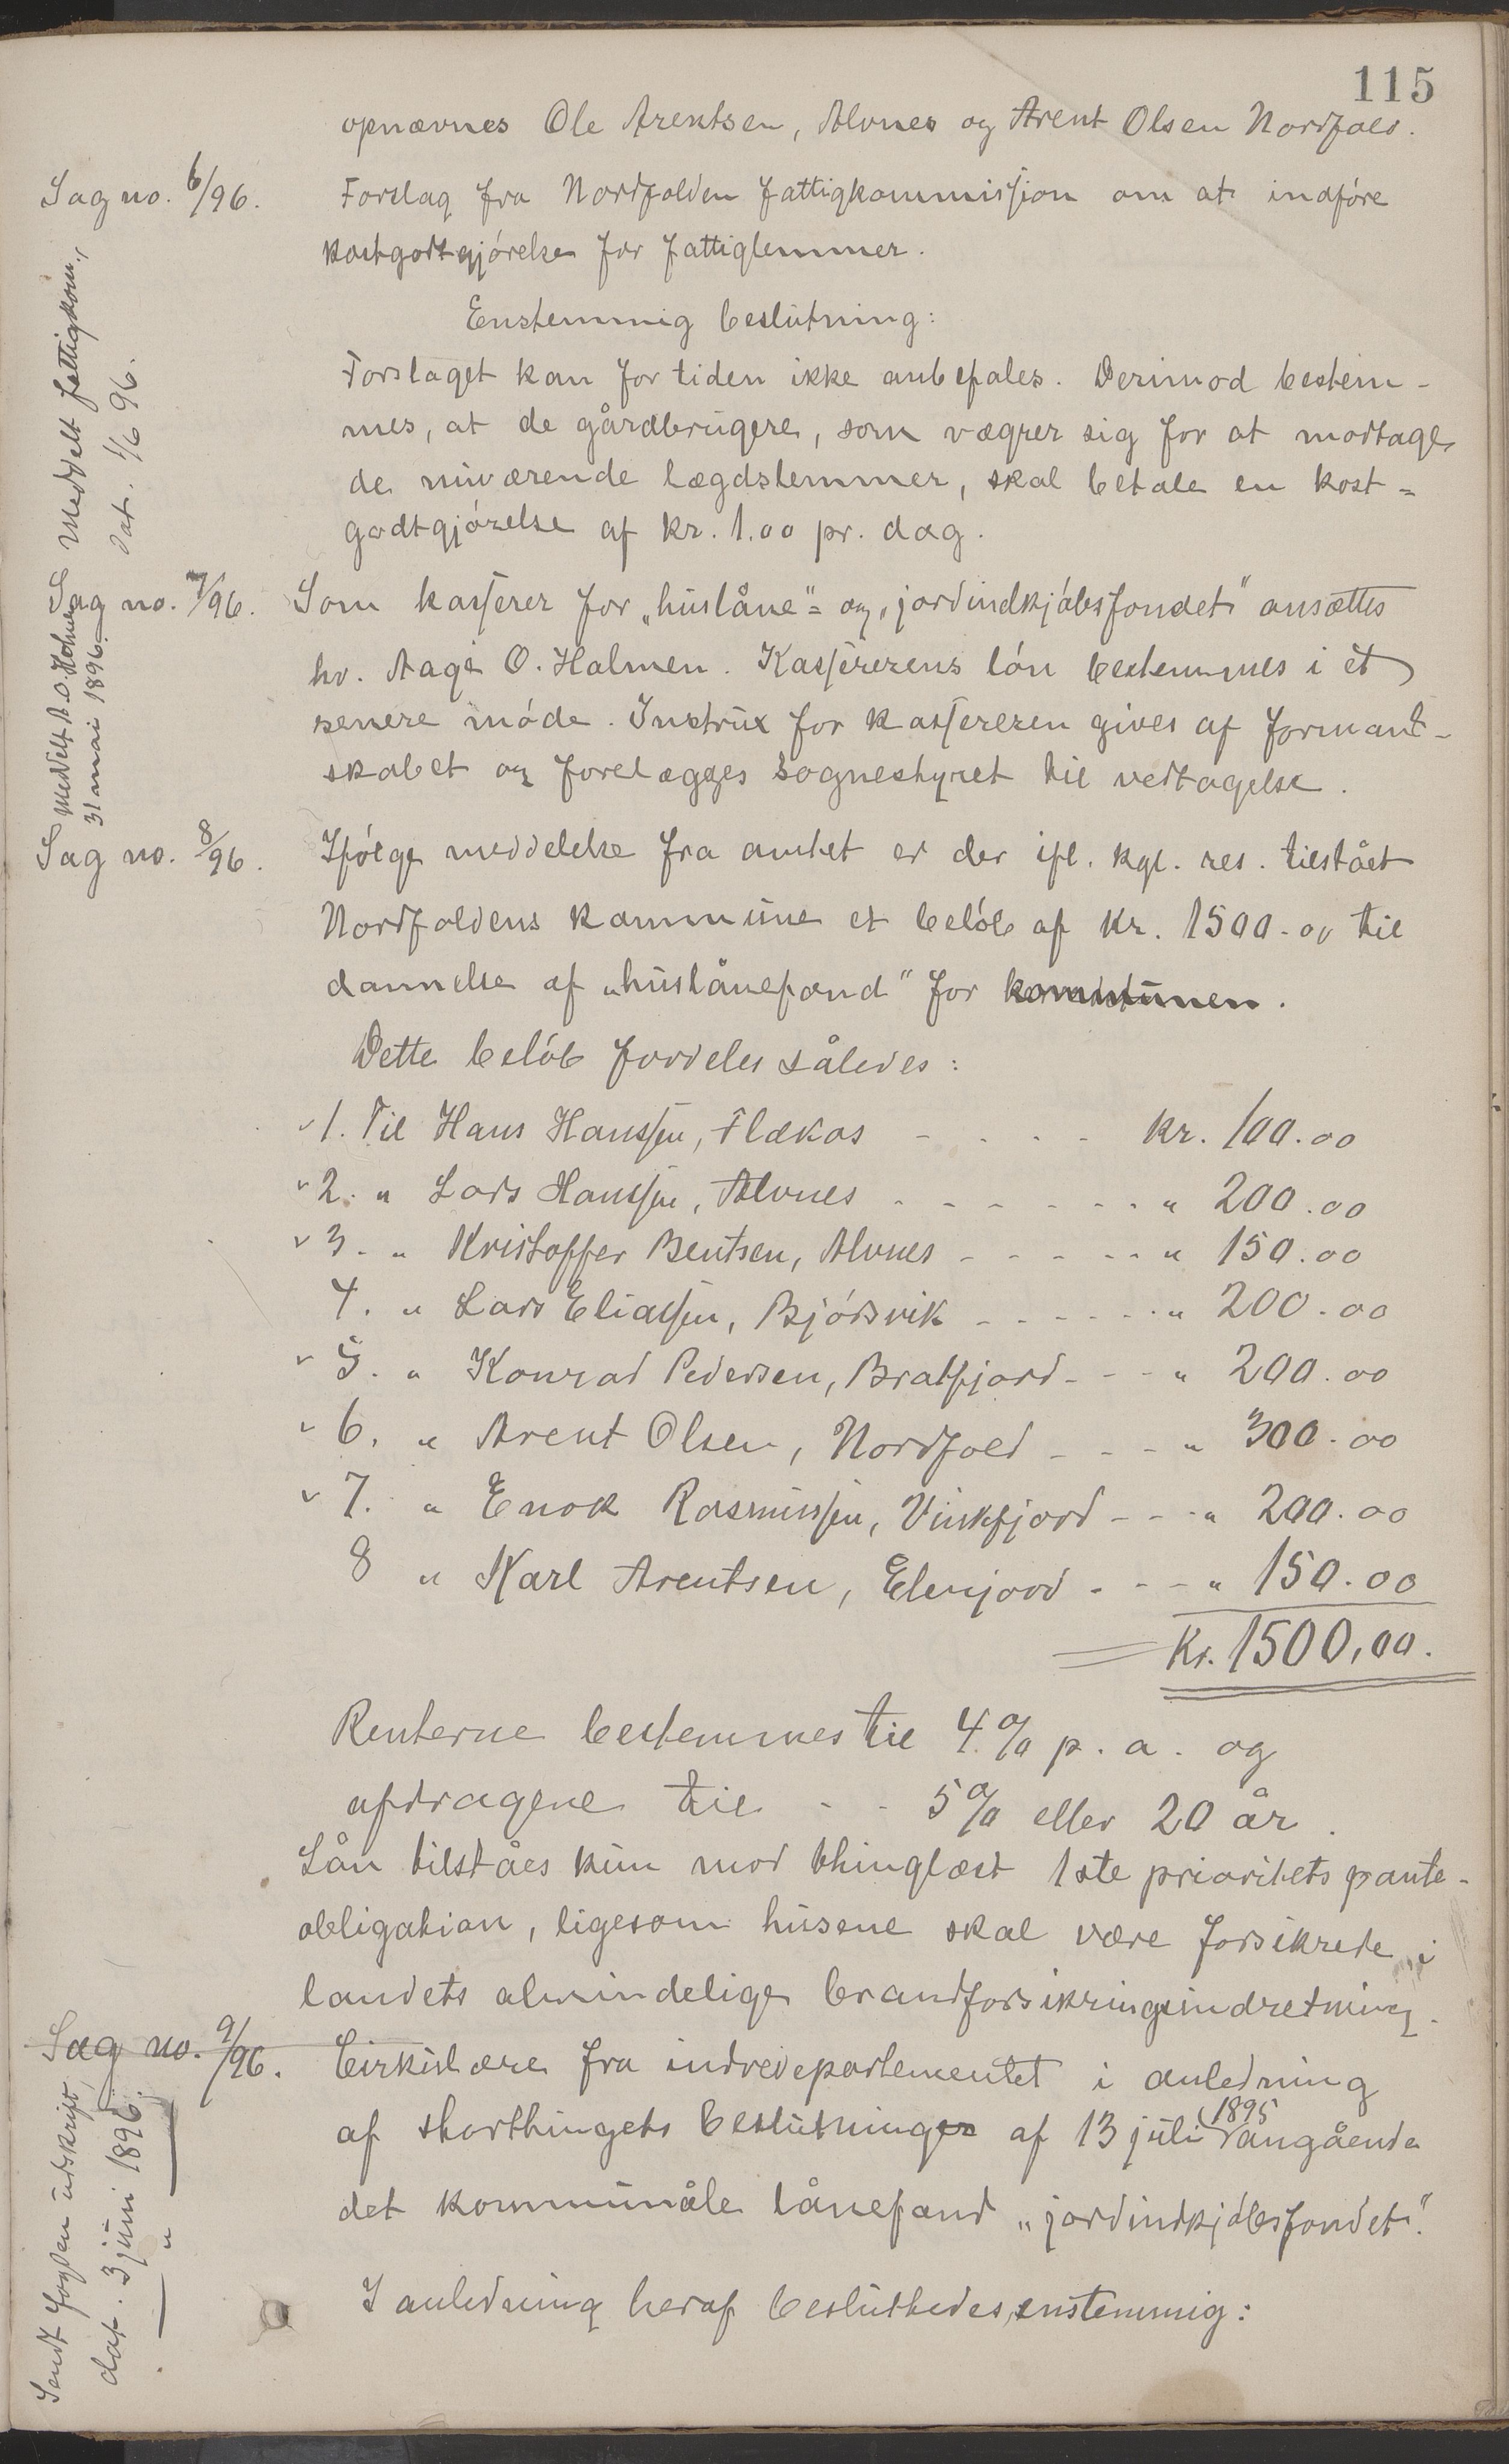 115
opnævnes Ole Arentsen, Alvnes og Arent Olsen Nordfold.
Sag no. 6/96.
Forslag fra Nordfolden fattigkommission om at indføre
kostgodtgjórelse for fattiglemmer.
Meddelt fattigkom.,
dat. 1/6 96.
Enstemmig beslutning:
Forslaget kan for tiden ikke anbefales. Derimod bestem-
mes, at de gårdbrugere, som vægrer sig for at modtage
de nuværende lægdslemmer, skal betale en kost=
godtgjórelse af kr. 1.00 pr. dag.
Sag no. 7/96.
Meddelt A. O. Holmen
31 mai 1896.
Som kasserer for „huslåne"= og „jordindkjóbsfondet" ansættes
hr. Aage O. Holmen. Kassererens lón bestemmes i et
senere móde. Instrux for kassereren gives af formand-
skabet og forelægges sognestyret til vedtagelse.
Sag no. 8/96.
Ifólge meddelelse fra amtet er der ifl. kgl. res. tilstået
Nordfoldens kommune et belób af kr. 1500.00 til
dannelse af „huslånefond" for kommunen.
Dette belób fordeles således:
1. Til Hans Hanssen, Flækos - - - - kr. 100.00
2. " Lars Hanssen, Alvnes - - - - - - " 200.00
3. " Kristoffer Bentsen, Alvnes - - - - - " 150.00
4. " Lars Eliassen, Bjórsvik - - - - - - " 200.00
5. " Konrad Pedersen, Bratfjord - - - " 200.00
6. " Arent Olsen, Nordfold - - - - " 300.00
7. " Enok Rasmussen, Vinkfjord - - - " 200.00
8 " Karl Arentsen, Elenjord - - - - " 150.00
Kr. 1500,00.
Renterne bestemmes til 4% p. a. og
afdragene til - - 5% eller 20 år.
Lån tilståes kun mod thinglæst 1ste prioritets pante-
obligation, ligesom husene skal være forsikrede i
landets almindelige brandforsikringsindretning.
Sag no. 9/96.
Sendt fogden udskrift,
dat. 3 juni 1896.
Cirkulære fra indredepartementet i anledning
af storthingets beslutning af 13 juli 1895 angående
det kommunale lånefond „jordindkjóbsfondet".
I anledning heraf besluttedes enstemmig: